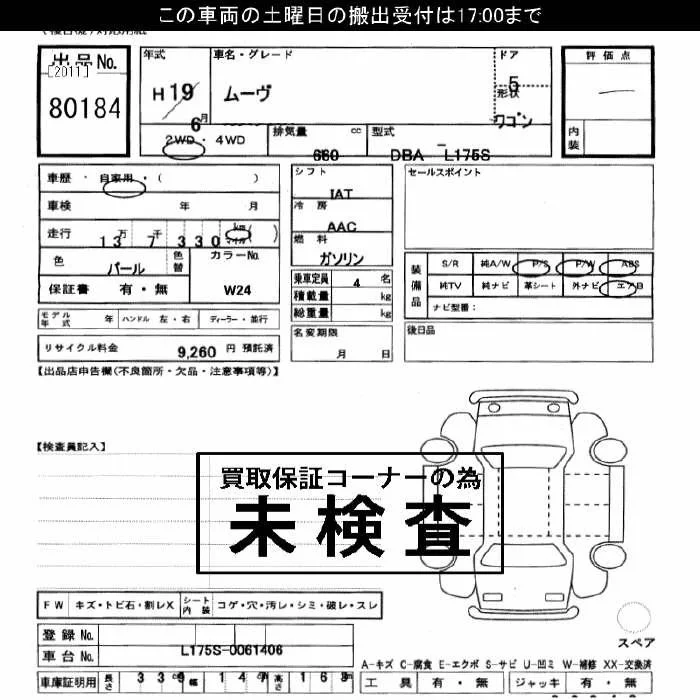 この車両の土曜日の搬出受付は17:00まで
出品No.
[2011]
80184
年式 車名・グレード ドア
H 19 ムーヴ 5
形状
6 月 ワゴン
2WD ・ 4WD 排気量 cc 型式
660 DBA - L175S
評価点
内装
車歴 ・ 自家用 ・ ( )
車検 年 月
走行 万 千 km マイル ( )
13 7 330
色 色替 カラーNo.
パール
W24
保証書 有・無
シフト
IAT
冷房
AAC
燃料
ガソリン
乗車定員 4 名
積載量 kg
総重量 kg
セールスポイント
装備品
S/R 純A/W P/S P/W ABS
純TV 純ナビ 革シート 外ナビ エアB
ナビ型番:
モデル年式 年 ハンドル 左・右 ディーラー・並行
名変期限
月 日
後日品
リサイクル料金 9,260 円 預託済
【出品店申告欄(不良箇所・欠品・注意事項等)】
【検査員記入】
買取保証コーナーの為
未検査
FW キズ・トビ石・割レX シート内装 コゲ・穴・汚レ・シミ・破レ・スレ
登録No.
車台No. L175S-0061406
車庫証明用 長さ 339 幅 147 高さ 168
スペア
A-キズ C-腐食 E-エクボ S-サビ U-凹ミ W-補修 XX-交換済
工具 有・無 ジャッキ 有・無